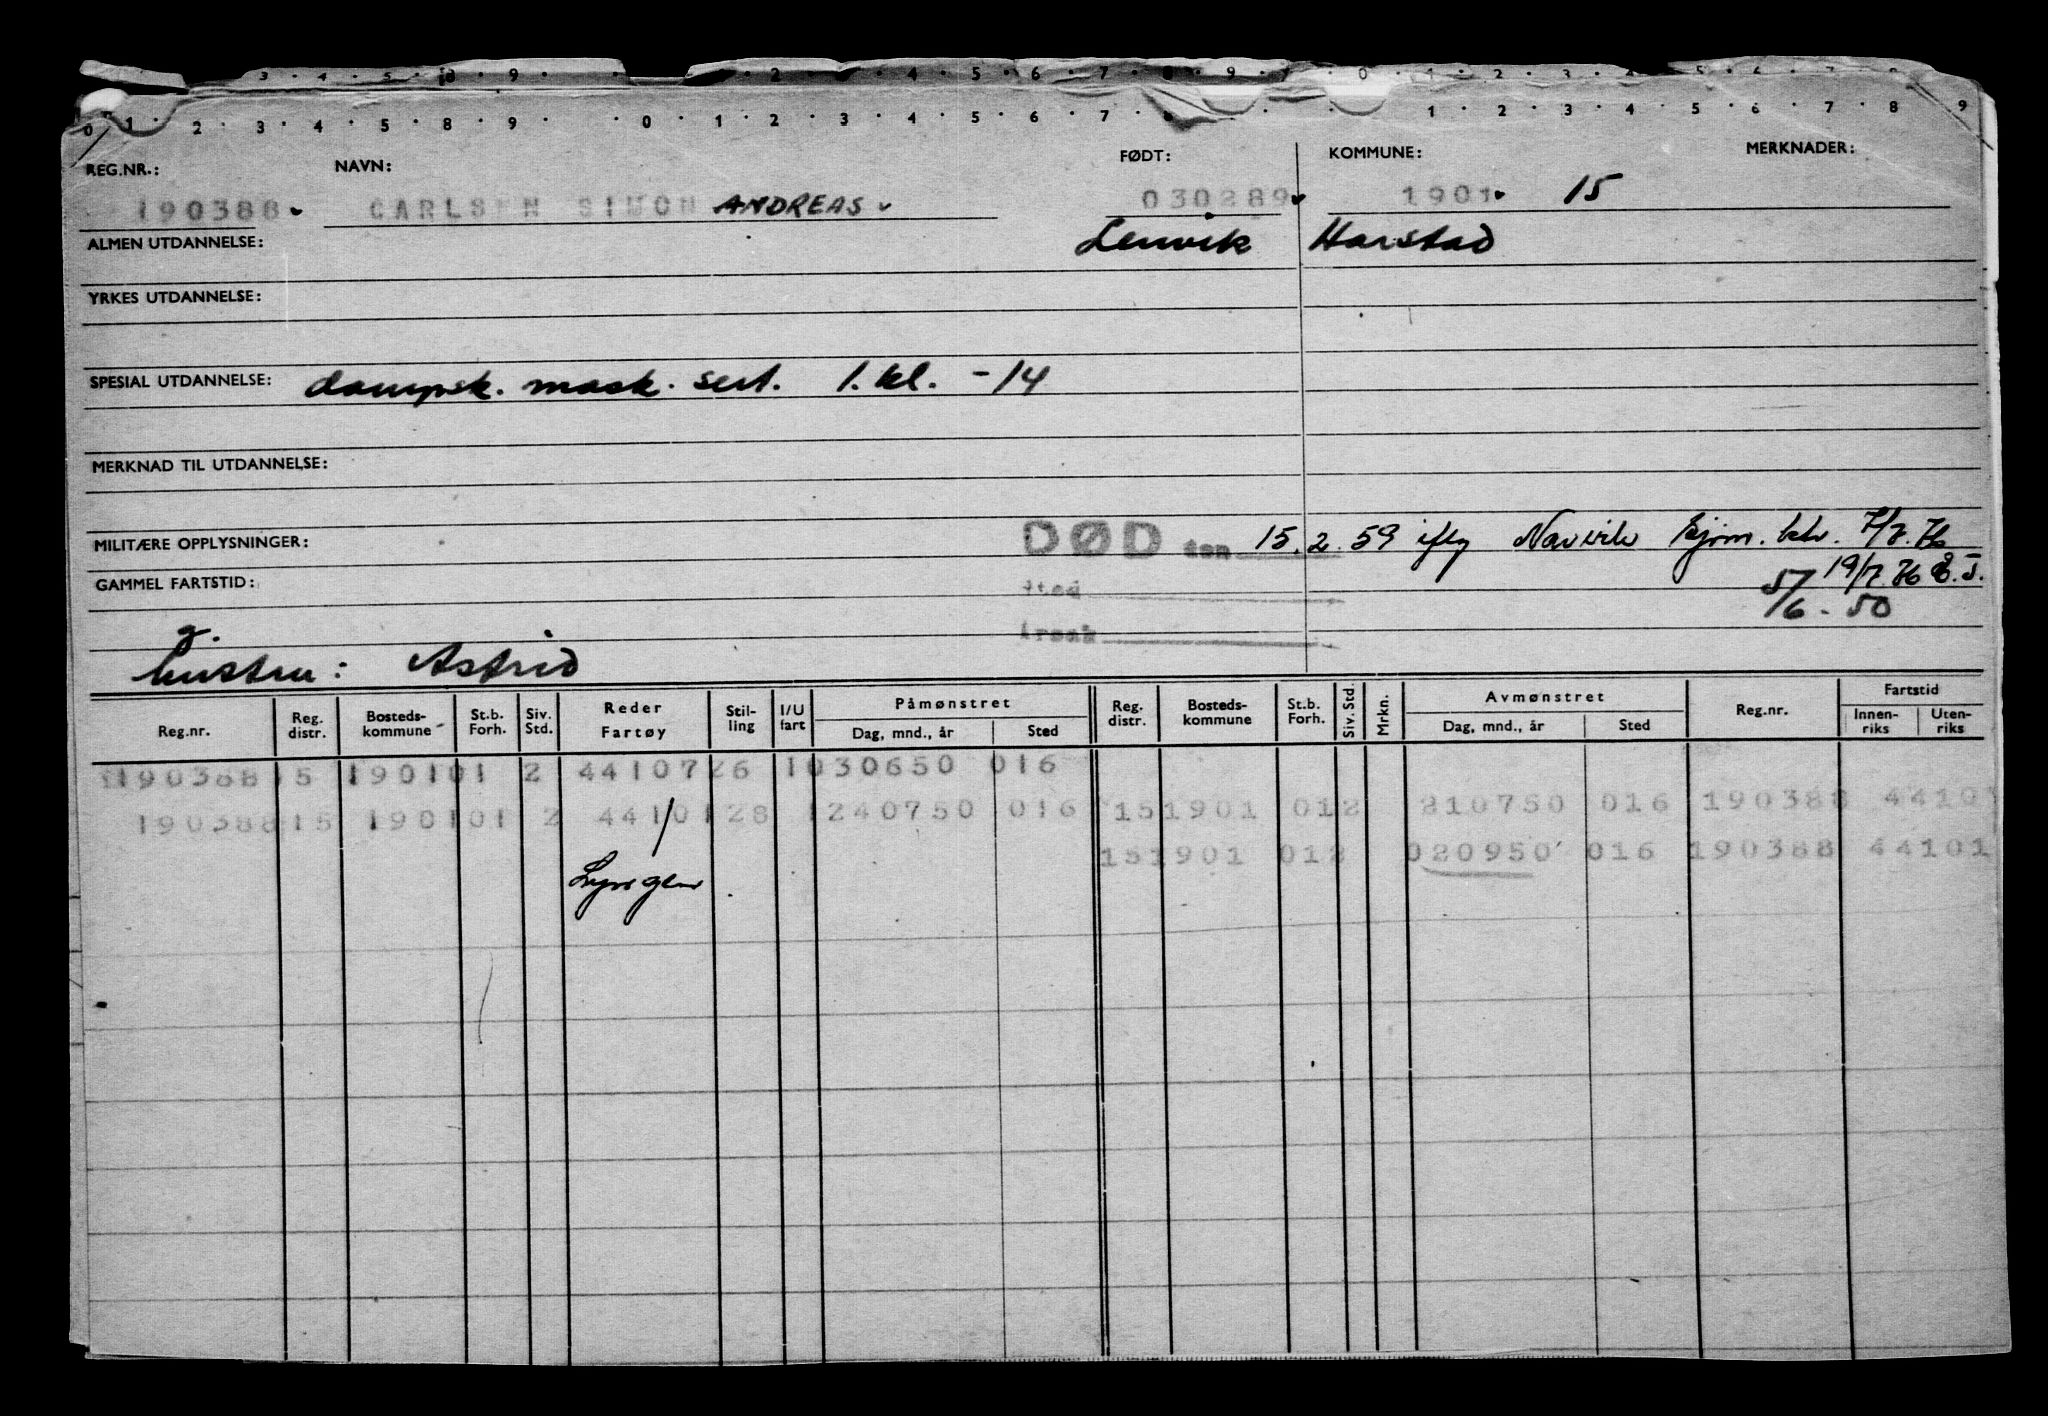 0 1 2 3 4 5 8 9 0 1 2 3 4 5 6 7 8 1 2 3 4 5 6 7 8 9
REG.NR.: NAVN: FØDT: KOMMUNE: MERKNADER:
190388 CARLSEN SIMON ANDREAS 030289 1901 15
ALMEN UTDANNELSE: Lenvik Harstad
YRKES UTDANNELSE:
SPESIAL UTDANNELSE: dampsk. mask. sert. 1. kl. -14
MERKNAD TIL UTDANNELSE:
MILITÆRE OPPLYSNINGER: DØD den 15.2.59 iflg
GAMMEL FARTSTID: Sted
5/6 - 50
g. Årsak
hustru: Astrid
Reg.nr. Reg. distr. Bosteds- kommune St.b. Forh. Siv. Std. Reder Fartøy Stil- ling I/U fart Påmønstret Dag, mnd., år Sted Reg. distr. Bosteds- kommune St.b. Forh. Siv. Std. Mrkn. Avmønstret Dag, mnd., år Sted Reg.nr. Fartstid Innen- riks Uten- riks
190388 15 1901 01 2 4410726 1 030650 016
190388 15 1901 01 2 4410128 1 240750 016 15 1901 01 2 210750 016 190388 44101
15 1901 01 2 020950 016 190388 44101
Lyngen